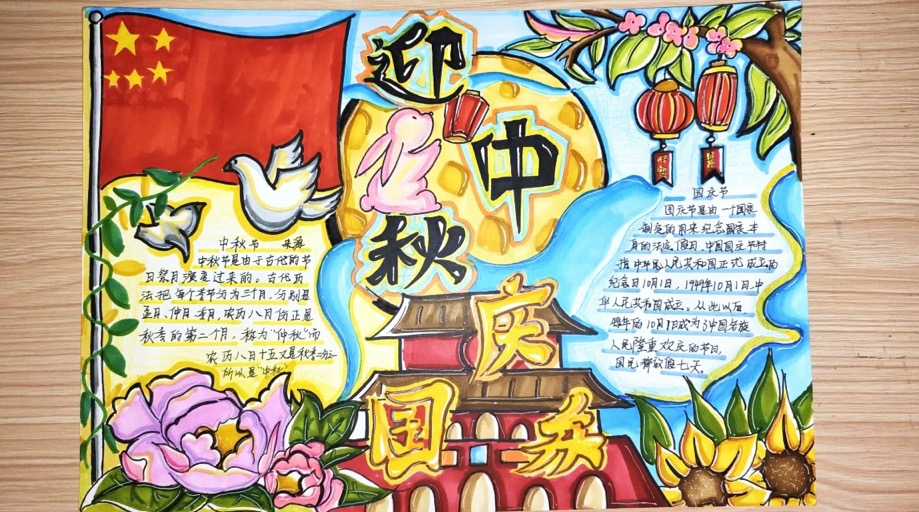 迎
中
秋
庆
国
庆
中秋节 来源
中秋节是由于古代的节
日祭月演变过来的。古代历
法把每个季节分为三个月，分别是
孟月、仲月、季月，农历八月份正是
秋季的第二个月，称为“仲秋”而
农历八月十五又是秋季
所以是“中秋”
国庆节
国庆节是由一个国家
制定的用来纪念国家本
身的法定假日，中国国庆节特
指中华人民共和国正式成立的
纪念日10月1日，1949年10月1日，中
华人民共和国成立。从此以后
每年的10月1日成为了中国各族
人民隆重欢庆的节日。
国庆 放假七天。